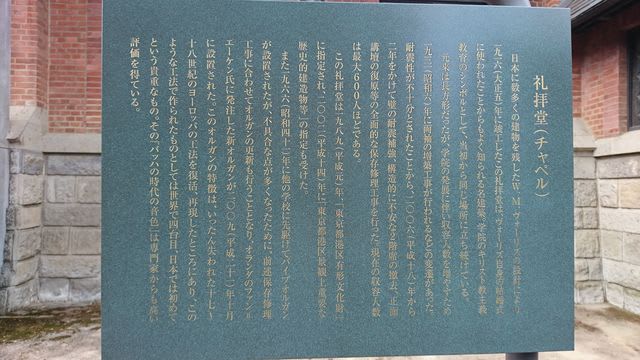 礼拝堂(チャペル)
日本に数多くの建物を残したW.M.ヴォーリズの設計により
一九一六(大正五)年に竣工したこの礼拝堂は、ヴォーリズ自身の結婚式
に使われたことからもよく知られる名建築。学院のキリスト教主義
教育のシンボルとして、当初から同じ場所に立ち続けている。
元来は長方形だったが、学院の発展に伴い収容人数を増やすため
一九三一(昭和六)年に両翼の増築工事が行われるなどの変遷があった。
耐震性が不十分とされたことから、二〇〇六(平成十八)年から
二年をかけて壁の耐震補強、構造的に不安な2階席の撤去、正面
講壇の復原等の全面的な保存修理工事を行った。現在の収容人数
は最大600人ほどである。
この礼拝堂は一九八九(平成元)年、「東京都港区有形文化財」
に指定され、二〇〇二(平成十四)年に「東京都港区景観上重要な
歴史的建造物等」の指定も受けた。
また一九六六(昭和四十一)年に他の学校に先駆けてパイプオルガン
が設置されたが、不具合な点が多くなったために、前述保存修理
工事に合わせてオルガンの更新も行うこととなり、オランダのファン=
エーケン氏に発注した新オルガンが二〇〇九(平成二十一)年十月
に設置された。このオルガンの特徴は、いったん失われた十七~
十八世紀のヨーロッパの工法を復活、再現したところにあり、この
ような工法で作られたものとしては世界で四台目、日本では初めて
という貴重なもの。その『バッハの時代の音色』は専門家からも高い
評価を得ている。